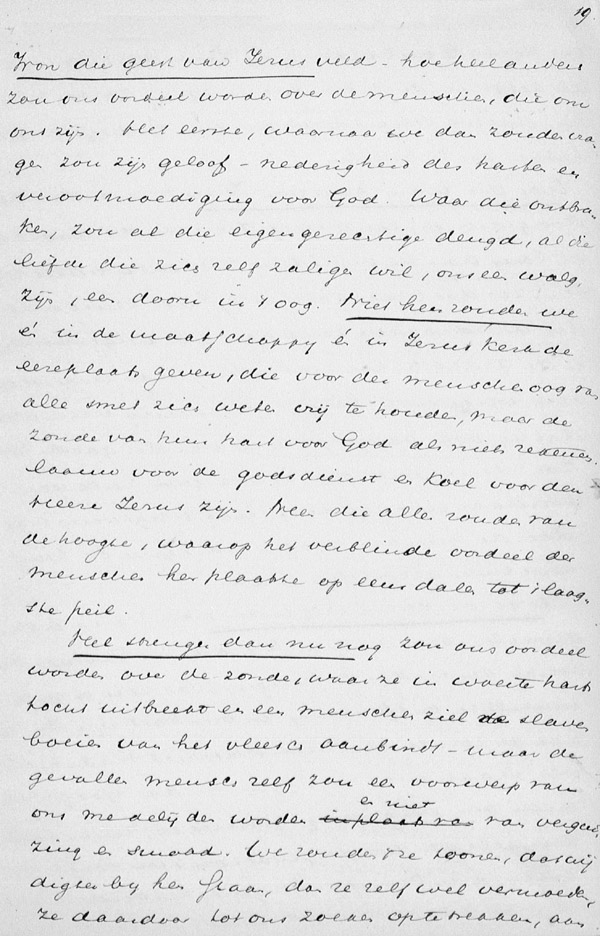 19.
Won die geest van Jezus veld – hoe heel anders
zou ons oordeel worden over de menschen, die om
ons zijn. Het eerste, waarnaar we dan zouden vra-
gen zou zijn geloof – nederigheid des harten en
verootmoediging voor God. Waar die ontbra-
ken, zou al die eigengerechtige deugd, al die
liefde die zich zelf zaligen wil, ons een walg
zijn, een doorn in 't oog. Niet hen zouden we
én in de maatschappij én in Jezus kerk de
eereplaats geven, die voor der menschen oog van
alle smet zich weten vrij te houden, maar de
zonde van hun hart voor God als niets rekenen
laauw voor de godsdienst en koel voor den
Heere Jezus zijn. Neen die allen zouden van
de hoogte, waarop het verblinde oordeel der
menschen hen plaatste op eens dalen tot 't laag-
ste peil.
Veel strenger dan nu nog zou ons oordeel
worden over de zonde, waar ze in woeste harts
tocht uitbreekt en een menschen ziel de slaven
boeien van het vleesch aanbindt – maar de
gevallen mensch zelf zou een voorwerp van
ons medelijden worden in plaats van en niet van vergui-
zing en smaad. We zouden ze toonen, dat wij
digter bij hen staan, dan ze zelf wel vermoeden,
ze daardoor tot ons zoeken op te trekken, aan